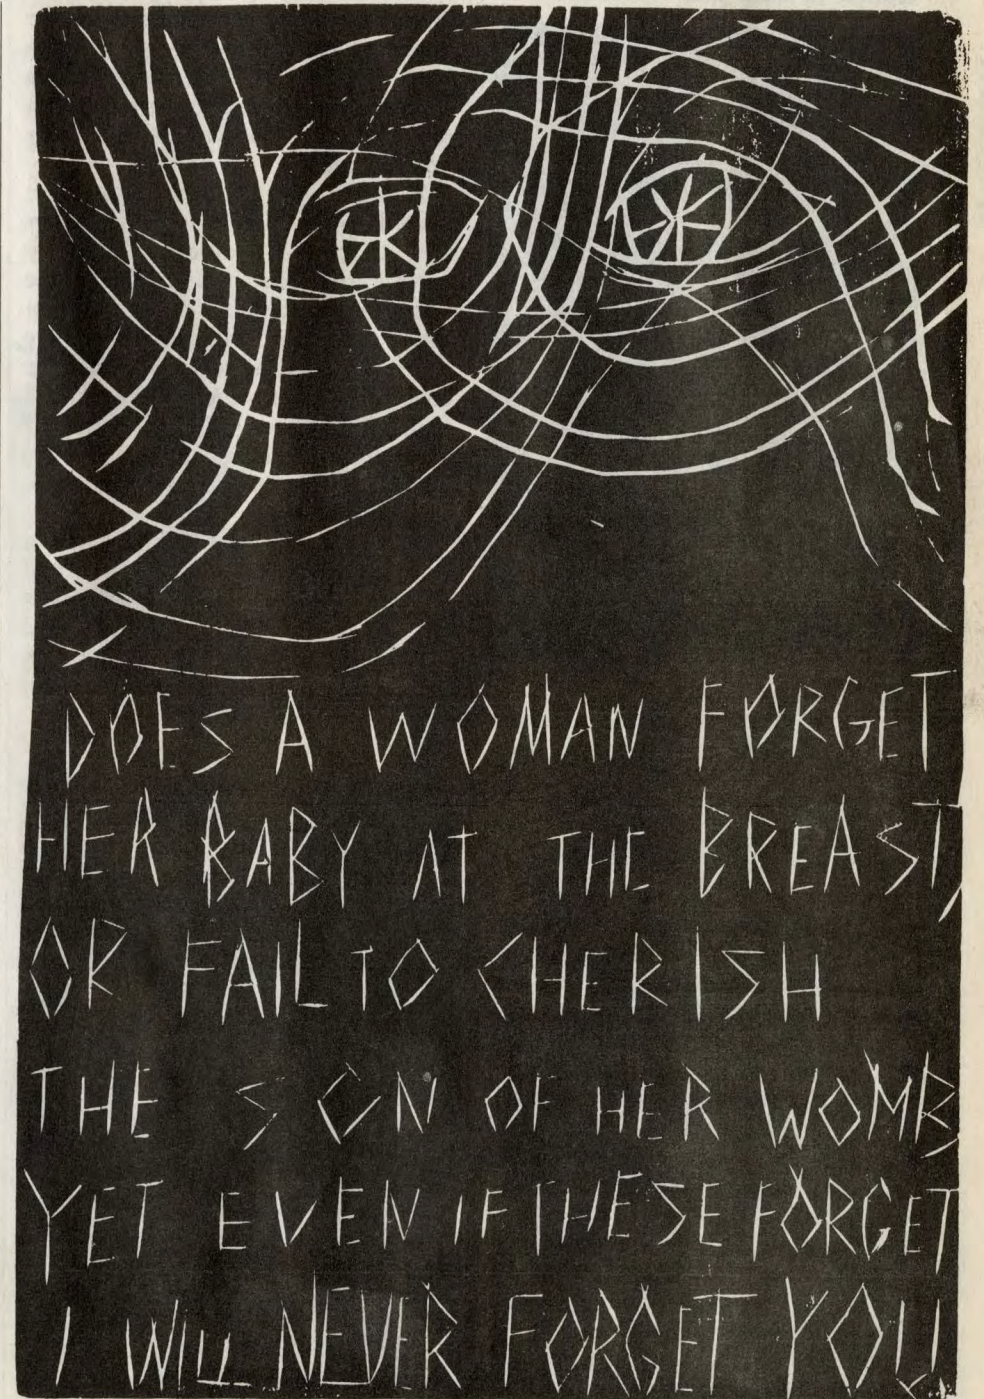 DOES A WOMAN FORGET
HER BABY AT THE BREAST,
OR FAIL TO CHERISH
THE SON OF HER WOMB
YET EVEN IF THESE FORGET
I WILL NEVER FORGET YOU.